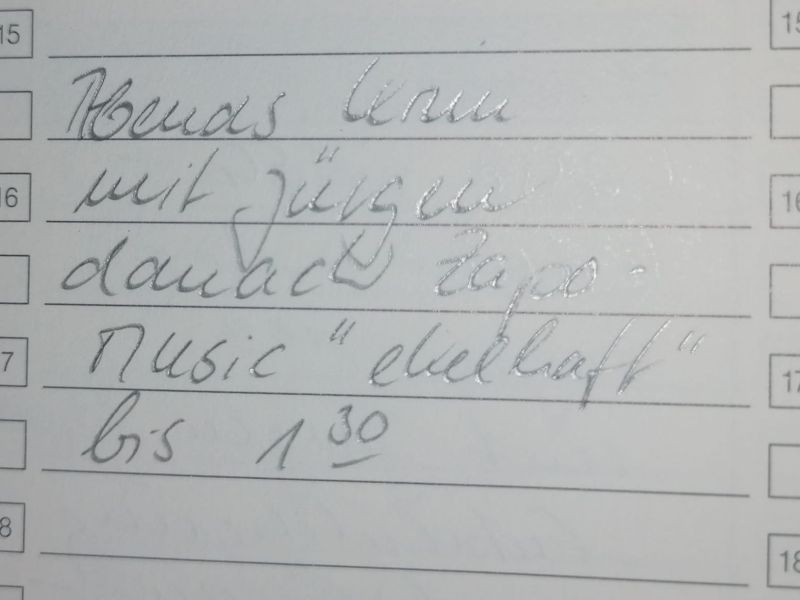 15 15
Abends lernen
16 mit Jürgen 16
danach Zapo-
7 Music "ekelhaft" 17
bis 1 30
8 18